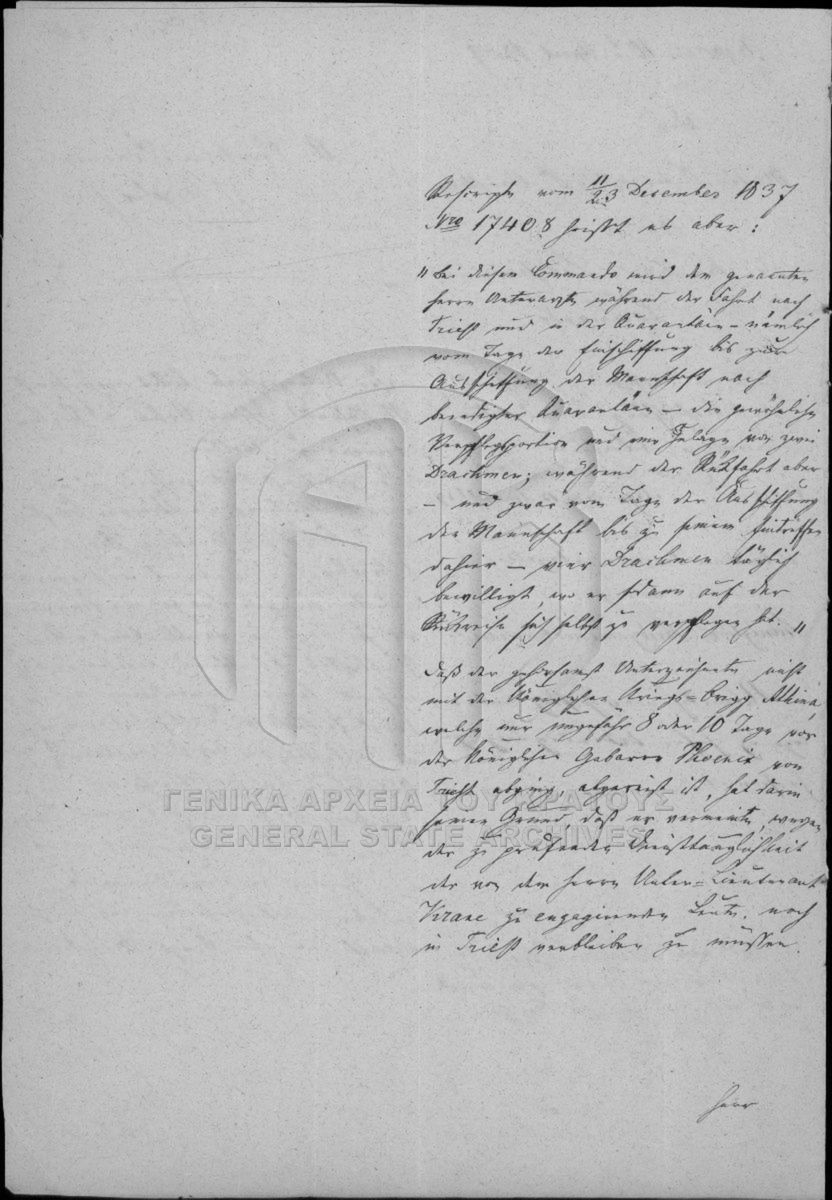 Rescripte vom 11/23 December 1837
Nro 17408 heißt es aber:
"Bei diesem Commando wird dem genannten
Herrn Unterarzte während der Fahrt nach
Triest und in der Quarantäin – nämlich
vom Tage der Einschiffung bis zur
Ausschiffung der Mannschaft nach
beendigter Quarantäin – die gewöhnliche
Verpflegsportion und eine Zulage von zwei
Drachmen; während der Rükfahrt aber
– und zwar vom Tage der Ausschiffung
der Mannschaft bis zu seinem Eintreffen
dahier – vier Drachmen täglich
bewilligt, wo er sodann auf der
Rükreise sich selbst zu verpflegen hat."
Daß der gehorsamst Unterzeichnete nicht
mit der Königlichen Kriegs-Brigg Athina,
welche nur ungefähr 8 oder 10 Tage vor
der Königlichen Gabarre Phoenix von
Triest abging, abgereist ist, hat darin
seinen Grund, daß er vermeinte, wegen
der zu prüfenden Diensttauglichkeit
der von dem Herrn Unter-Lieutenant
Krane zu engagirenden Leute, noch
in Triest verbleiben zu müssen.
Herr
ΓΕΝΙΚΑ ΑΡΧΕΙΑ ΤΟΥ ΚΡΑΤΟΥΣ
GENERAL STATE ARCHIVES